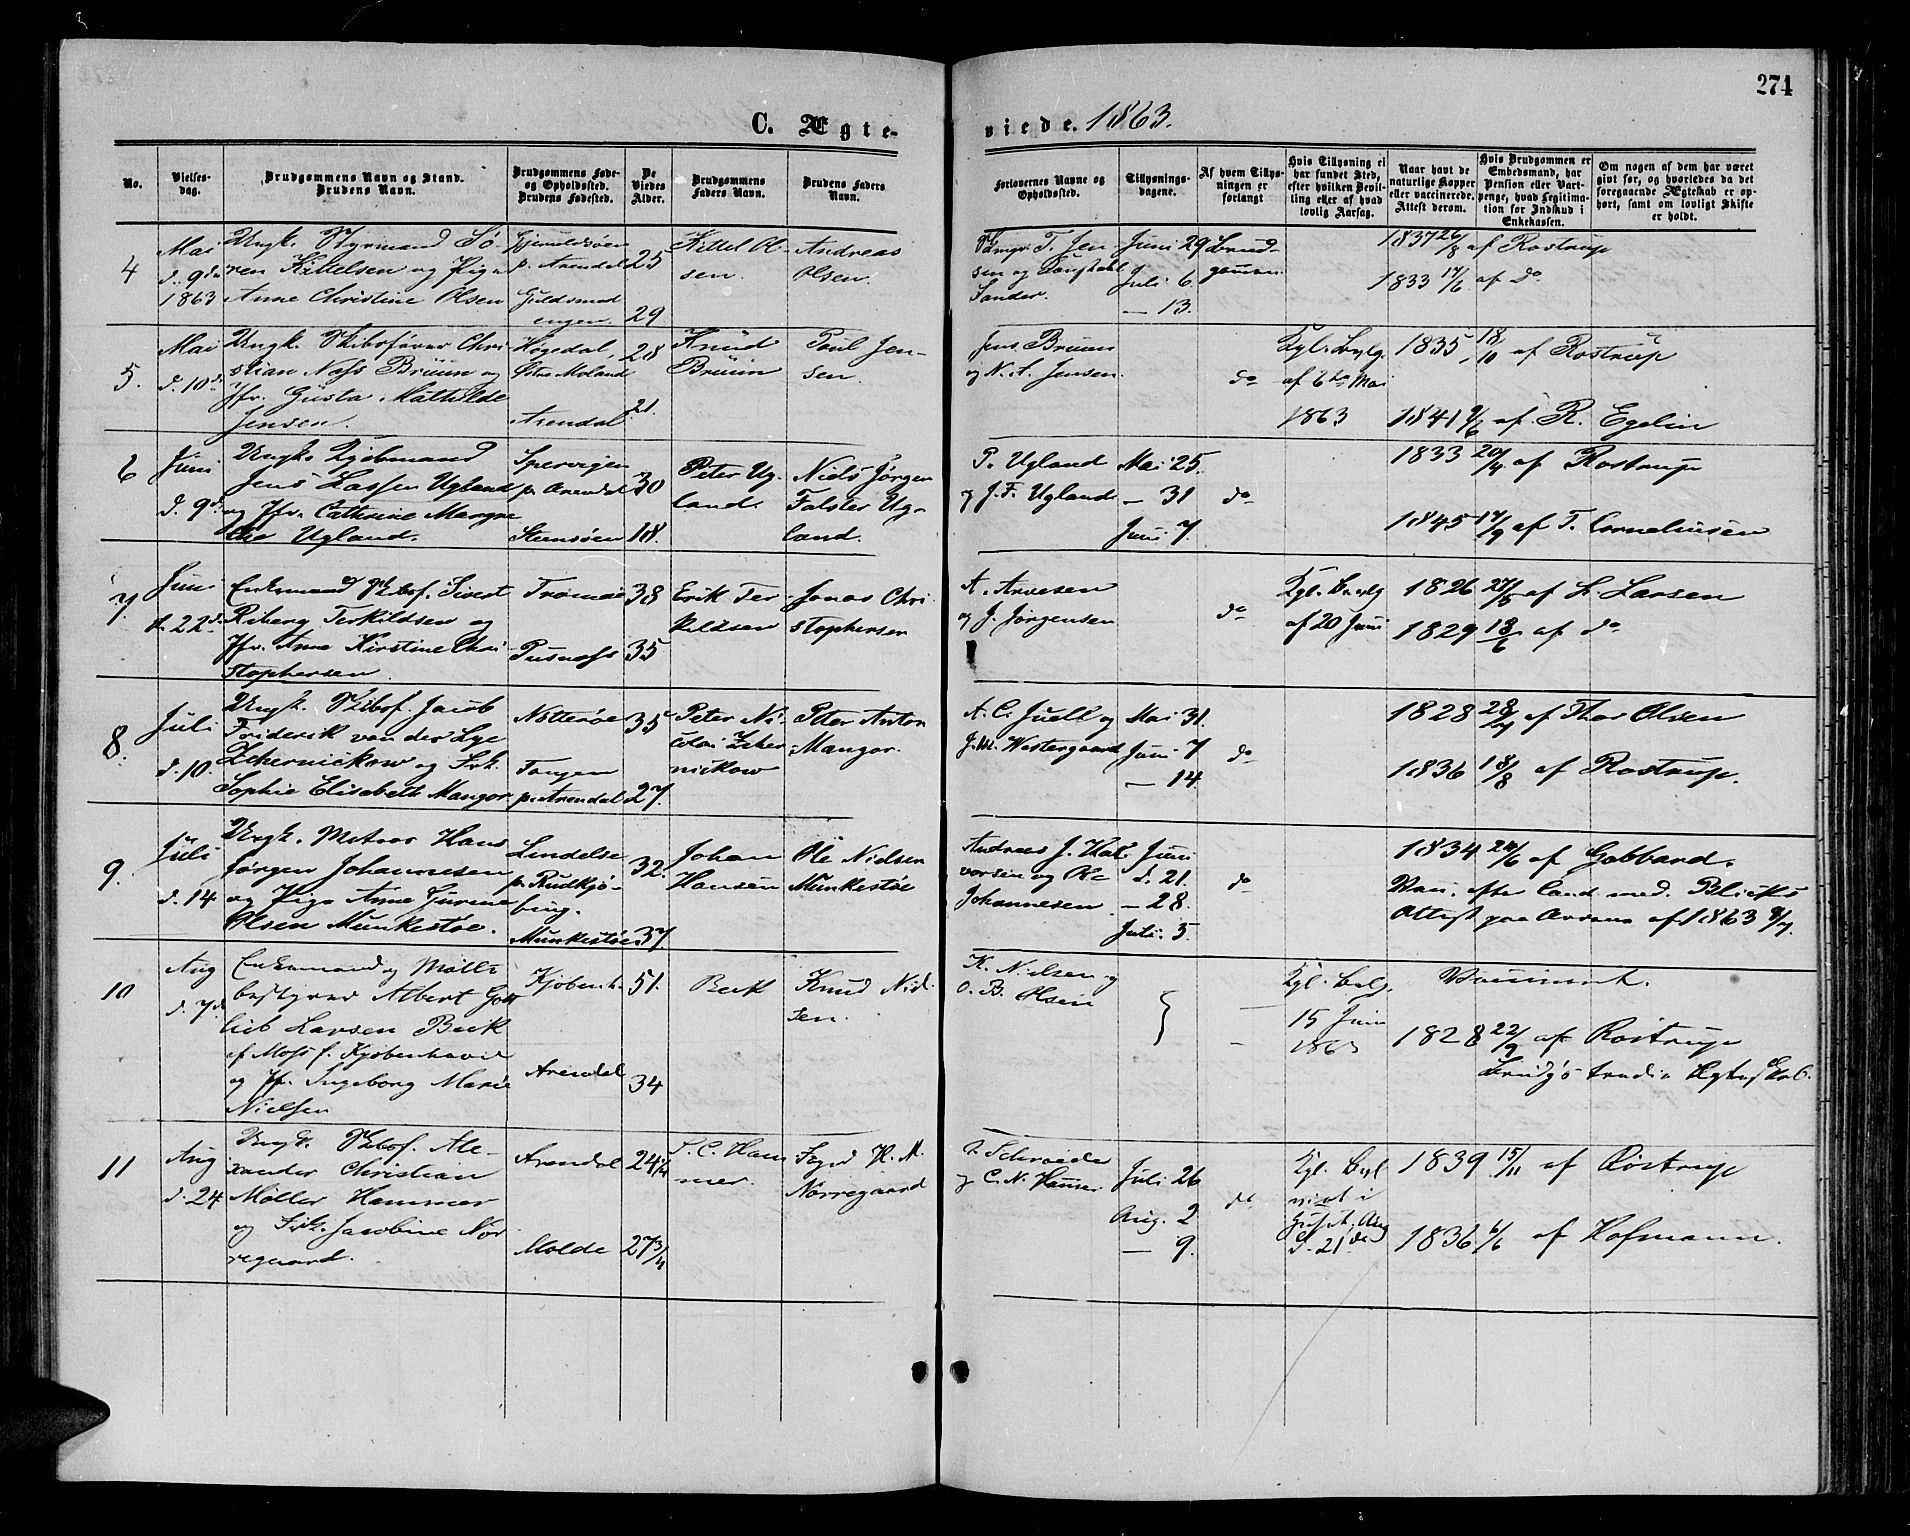 274
C. Ægte-
viede. 1863.
No.
Vielses-
dag.
Brudgommens Navn og Stand.
Brudens Navn.
Brudgommens Føde-
og Opholdssted.
Brudens Fødested.
De
Viedes
Alder.
Brudgommens
Faders Navn.
Brudens Faders
Navn.
Forlovernes Navne og
Opholdssted.
Tillysnings-
dagene.
Af hvem Tillys-
ningen er
forlangt
Hvis Tillysning ei
har fundet Sted,
efter hvilken Bevil-
ling eller af hvad
lovlig Aarsag.
Naar havt de
naturlige Kopper
eller vaccinerede.
Attest derom.
Hvis Brudgommen er
Embedsmand, har
Pension eller Vart-
penge, hvad Legitima-
tion for Indskud i
Enkekassen.
Om nogen af dem har været
givt før, og hvorledes da det
foregaaende Ægteskab er op-
hørt, samt om lovligt Skifte
er holdt.
4
Mai
d. 9de
1863
Ungk. Styrmand Sø-
ren Kittelsen og Pige
Anne Christine Olsen
p. Arendal
25
29
Kittel Ol-
sen.
Andreas
Olsen.
T. Jen-
sen og
Sander.
Juni 29
Juli 6.
— 13.
Brud-
gommen.
1837 26/8 af Rostrup
1833 17/6 af do
5.
Mai
d. 10de
Ungk. Skibsfører Chri
stian Næss Bruun og
Jfr. Gusta Mathilde
Jensen.
Høgedal,
Østre Moland
Arendal
28
21.
Knud
Bruun
Poul Jen-
sen.
Jens Bruun
og N. A. Jensen.
do
Kgl. Bevlg.
af 6te Mai
1863
1835, 18/10 af Rostrup
1841 9/6 af R. Egelin
6
Juni
d. 9de
Ungk. Kjøbmand
Jens Lassen Ugland
og Jfr. Cathrine Margre
the Ugland.
Spervigen
p. Arendal
Steensøen
30
18.
Peter Ug-
land.
Niels Jørgen
Falster Ug-
land.
P. Ugland
og J. F. Ugland.
Mai 25.
— 31
Juni 7
do
1833 20/4 af Rostrup
1845 17/9 af T. Corneliussen
7.
Juni
d. 22de
Enkemand Skibsf. Sivert
Riberg Terkildsen og
Jfr. Anne Kirstine Chri
stophersen.
Tromøe
Pusnæss
38
35
Erik Ter
kildsen
Jonas Chri
stophersen
A. Arvesen
og J. Jørgensen
do
Kgl. Bevlg
af 20 Juni
1826 27/8 af L. Larsen
1829 18/6 af do
8.
Juli
d. 10.
Ungk. Skibsf. Jacob
Friderik van der Lye
Zchernickow og Frk.
Sophie Elisabeth Mangor
Nøtterøe
Tangen
p. Arendal
35
27.
Peter Ni
colai Zcher
nickow
Peter Anton
Mangor.
A. C. Juell og
J. M. Westergaard
Mai 31.
Juni 7
— 14.
do
1828 28/4 af Thor Olsen
1836 18/8 af Rostrup.
9.
Juli
d. 14
Ungk. Matros Hans
Jørgen Johannesen
og Pige Anne Gurine
Olsen Munkestøe.
Lindelse
p. Rudkjø-
bing.
Munkestøe
32.
37.
Johan
Hansen
Ole Nielsen
Munkestøe
Andreas J. Hal
vorsen og Ole
Johannesen
Juni
d. 21.
— 28.
Juli. 5.
do
1834 24/6 af Gabbard.
Vac. efter Cand. med. Blichs
Attest paa Arsenes af 1863 8/7.
10
Aug
d. 7de
Enkemand og Mølle
bestyrer Albert Gott
lieb Larsen Beck
af Moss f. Kjøbenhavn
og Jfr. Ingeborg Marie
Nielsen
Kjøbenh.
Arendal
51.
34
Beck
Knud Niel
sen.
K. Nielsen og
O. B. Olsen
—
Kgl. Bevlg.
15 Juni
1863
Vaccineret.
1828 22/9 af Rostrup
Brudg's tredie Ægteskab.
11
Aug
d. 24
Ungk. Skibsf. Ale-
xander Christian
Møller Hammer
og Frk. Jacobine Nør
regaard.
Arendal
Molde
24 1/4
27 3/4
C. Ham
mer.
Foged H. M.
Nørregaard
Schrøder
og C. N. Hammer
Juli 26
Aug. 2
— 9.
do
Kgl. Bevl
viet i
Aug
d. 21de
1839 15/11 af Rostrup
1836 6/6 af Hofmann.